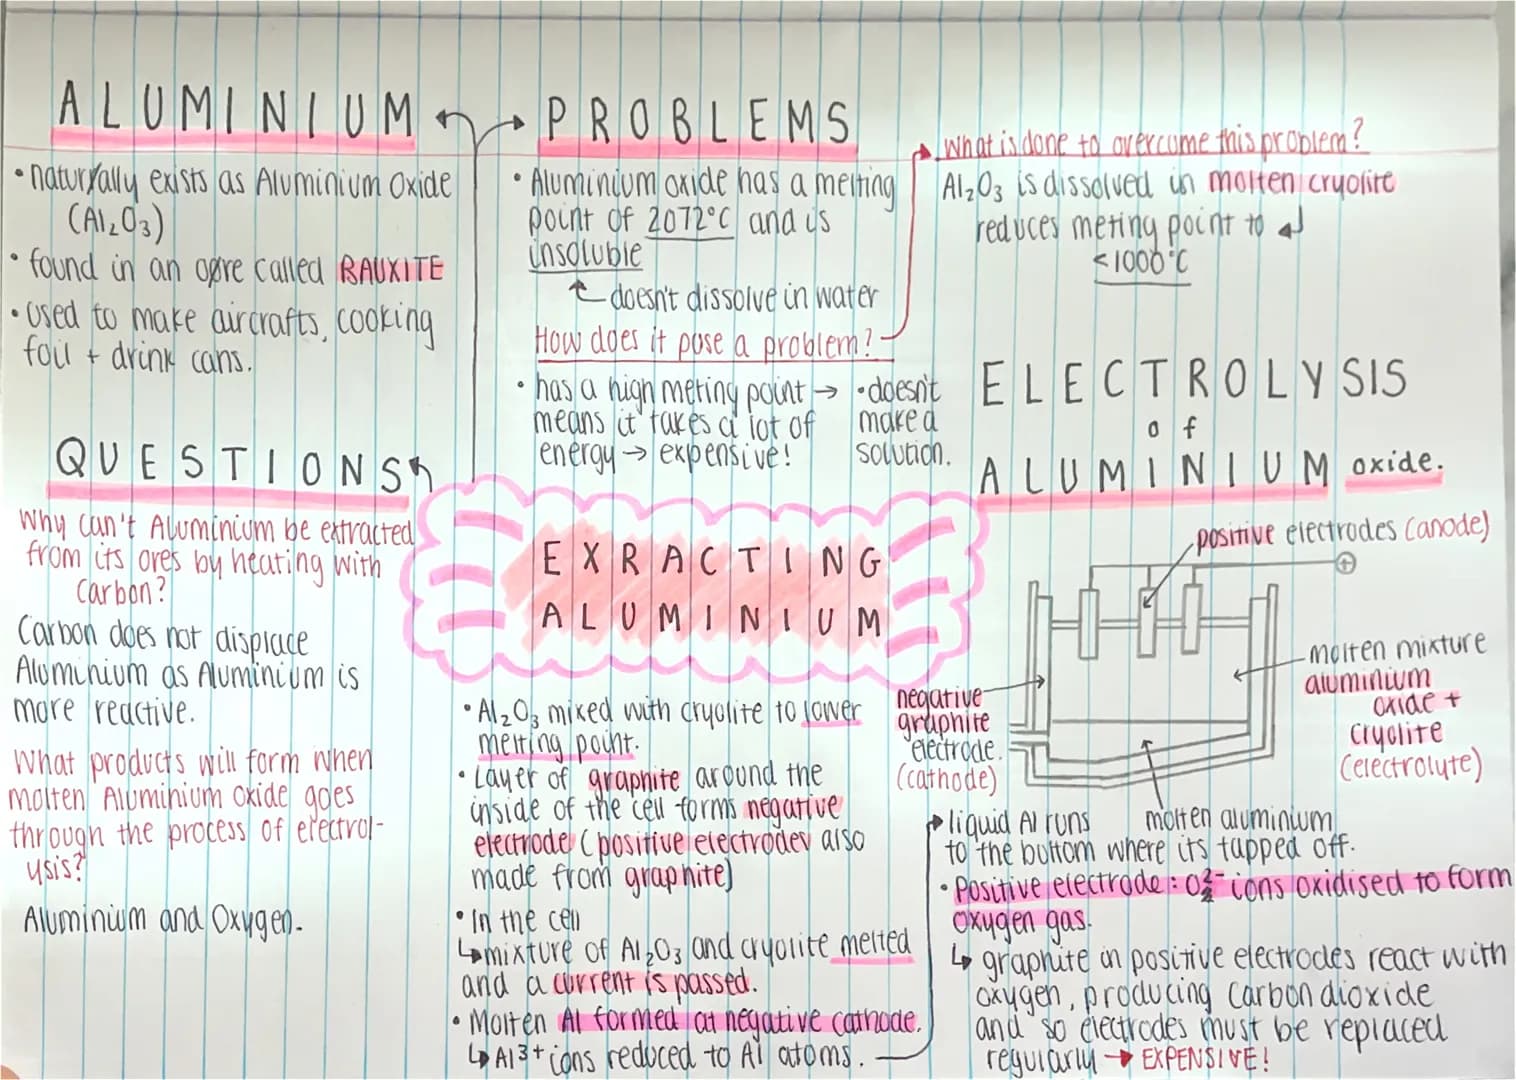 ALUMINIUM
• naturally exists as Aluminium Oxide
(Al₂O₃)
• found in an ore called BAUXITE
• used to make aircrafts, cooking
foil + drink cans.
PROBLEMS
• Aluminium oxide has a melting
point of 2072°C and is
insoluble
doesn't dissolve in water
How does it pose a problem?
• has a high meting point →
means it takes a lot of
energy → expensive!
• doesn't
make a
solution.
What is done to overcome this problem?
Al₂O₃ is dissolved in molten cryolite
reduces meting point to
<1000°C
QUESTIONS
Why can't Aluminium be extracted
from its ores by heating with
Carbon?
Carbon does not displace
Aluminium as Aluminium is
more reactive.
What products will form when
molten Aluminium Oxide goes
through the process of electrol-
ysis?
Aluminium and Oxygen.
EXRACTING
ALUMINIUM
• Al₂O₃ mixed with cryolite to lower
melting point.
• Layer of graphite around the
inside of the cell forms negative
electrode (positive electrodes also
made from graphite)
• In the cell
↳ mixture of Al₂O₃ and cryolite melted
and a current is passed.
• Molten Al formed at negative cathode.
↳ Al³⁺ ions reduced to Al atoms.
ELECTROLYSIS
of
ALUMINIUM oxide.
positive electrodes (anode)
+
molten mixture
aluminium
oxide +
cryolite
(electrolyte)
negative
graphite
electrode.
(cathode)
molten aluminium
liquid Al runs
to the bottom where its tapped off.
• Positive electrode: O²⁻ ions oxidised to form
oxygen gas.
↳ graphite in positive electrodes react with
oxygen, producing Carbon dioxide
and so electrodes must be replaced
regularly → EXPENSIVE!